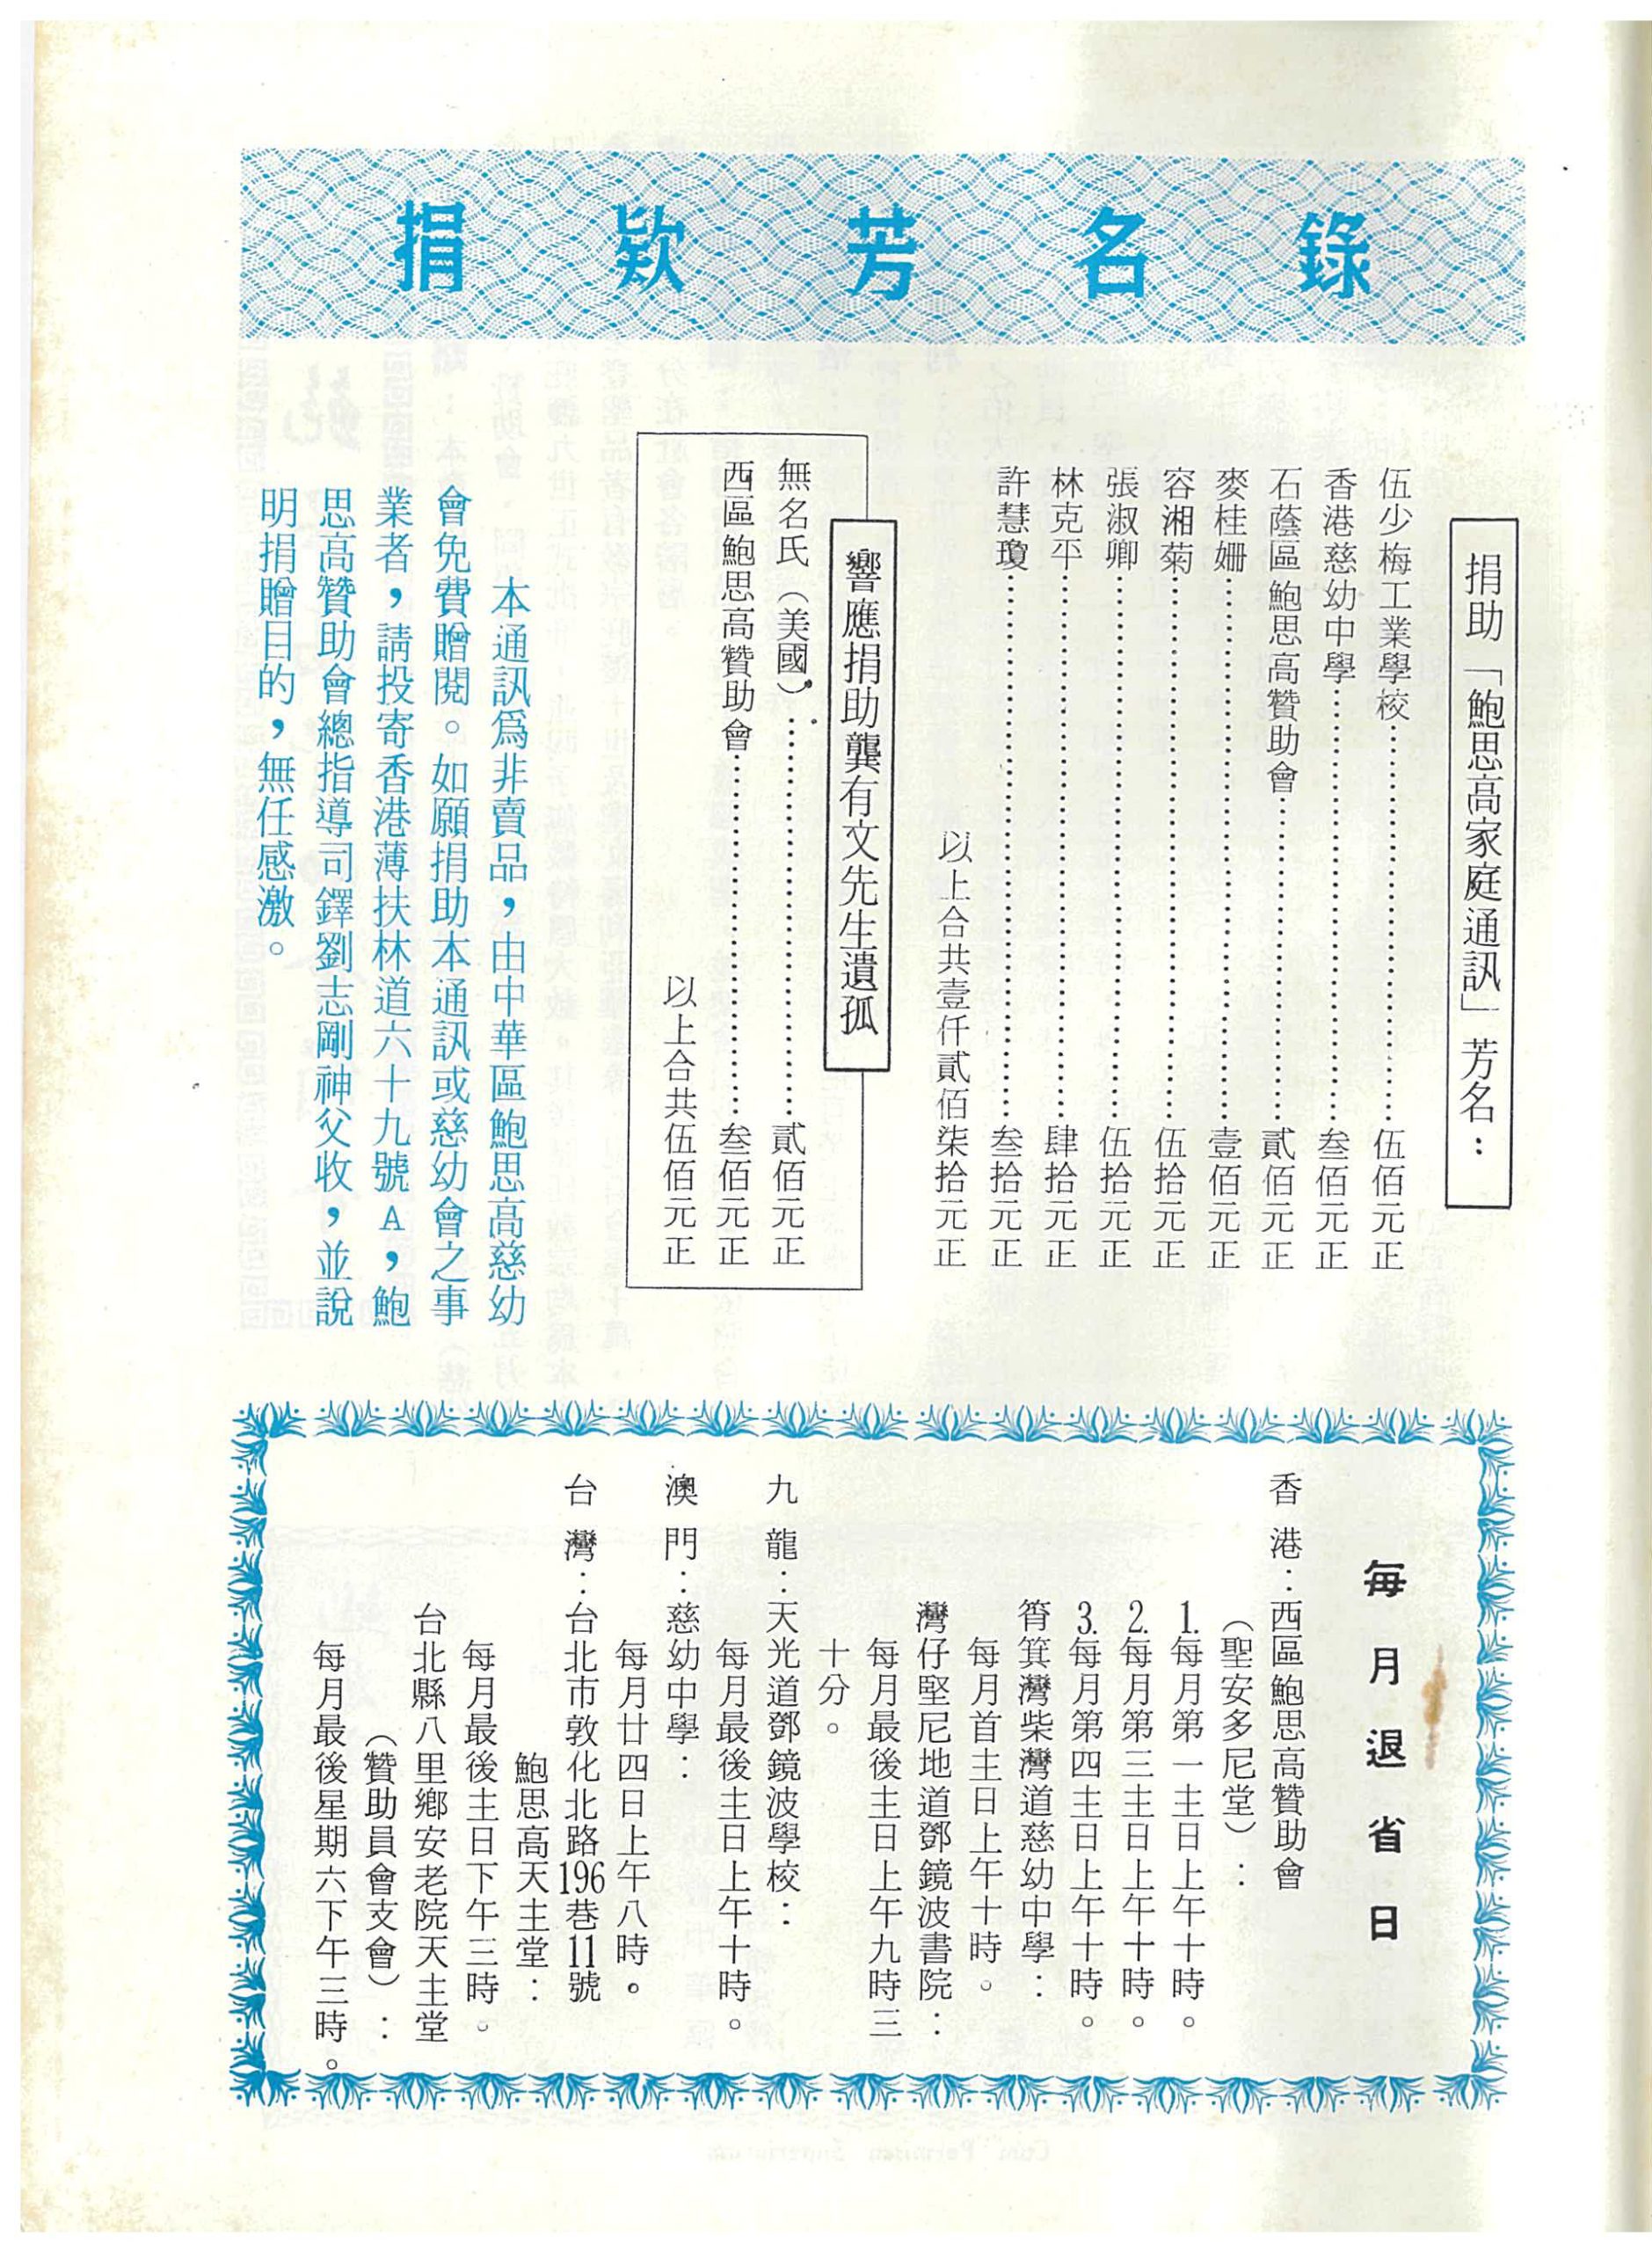 捐款芳名錄
捐助「鮑思高家庭通訊」芳名：
伍少梅工業學校……………………伍佰元正
香港慈幼中學……………………叁佰元正
石蔭區鮑思高贊助會……………………貳佰元正
麥桂姍……………………壹佰元正
容湘菊……………………伍拾元正
張淑卿……………………伍拾元正
林克平……………………肆拾元正
許慧瓊……………………叁拾元正
以上合共壹仟貳佰柒拾元正
響應捐助龔有文先生遺孤
無名氏（美國）……………………貳佰元正
西區鮑思高贊助會……………………叁佰元正
以上合共伍佰元正
本通訊爲非賣品，由中華區鮑思高慈幼
會免費贈閱。如願捐助本通訊或慈幼會之事
業者，請投寄香港薄扶林道六十九號A，鮑
思高贊助會總指導司鐸劉志剛神父收，並說
明捐贈目的，無任感激。
每月退省日
香港：西區鮑思高贊助會
（聖安多尼堂）：
1.每月第一主日上午十時。
2.每月第三主日上午十時。
3.每月第四主日上午十時。
筲箕灣柴灣道慈幼中學：
每月首主日上午十時。
灣仔堅尼地道鄧鏡波書院：
每月最後主日上午九時三
十分。
九龍：天光道鄧鏡波學校：
每月最後主日上午十時。
澳門：慈幼中學：
每月廿四日上午八時。
台灣：台北市敦化北路196巷11號
鮑思高天主堂：
每月最後主日下午三時。
台北縣八里鄉安老院天主堂
（贊助員會支會）：
每月最後星期六下午三時。